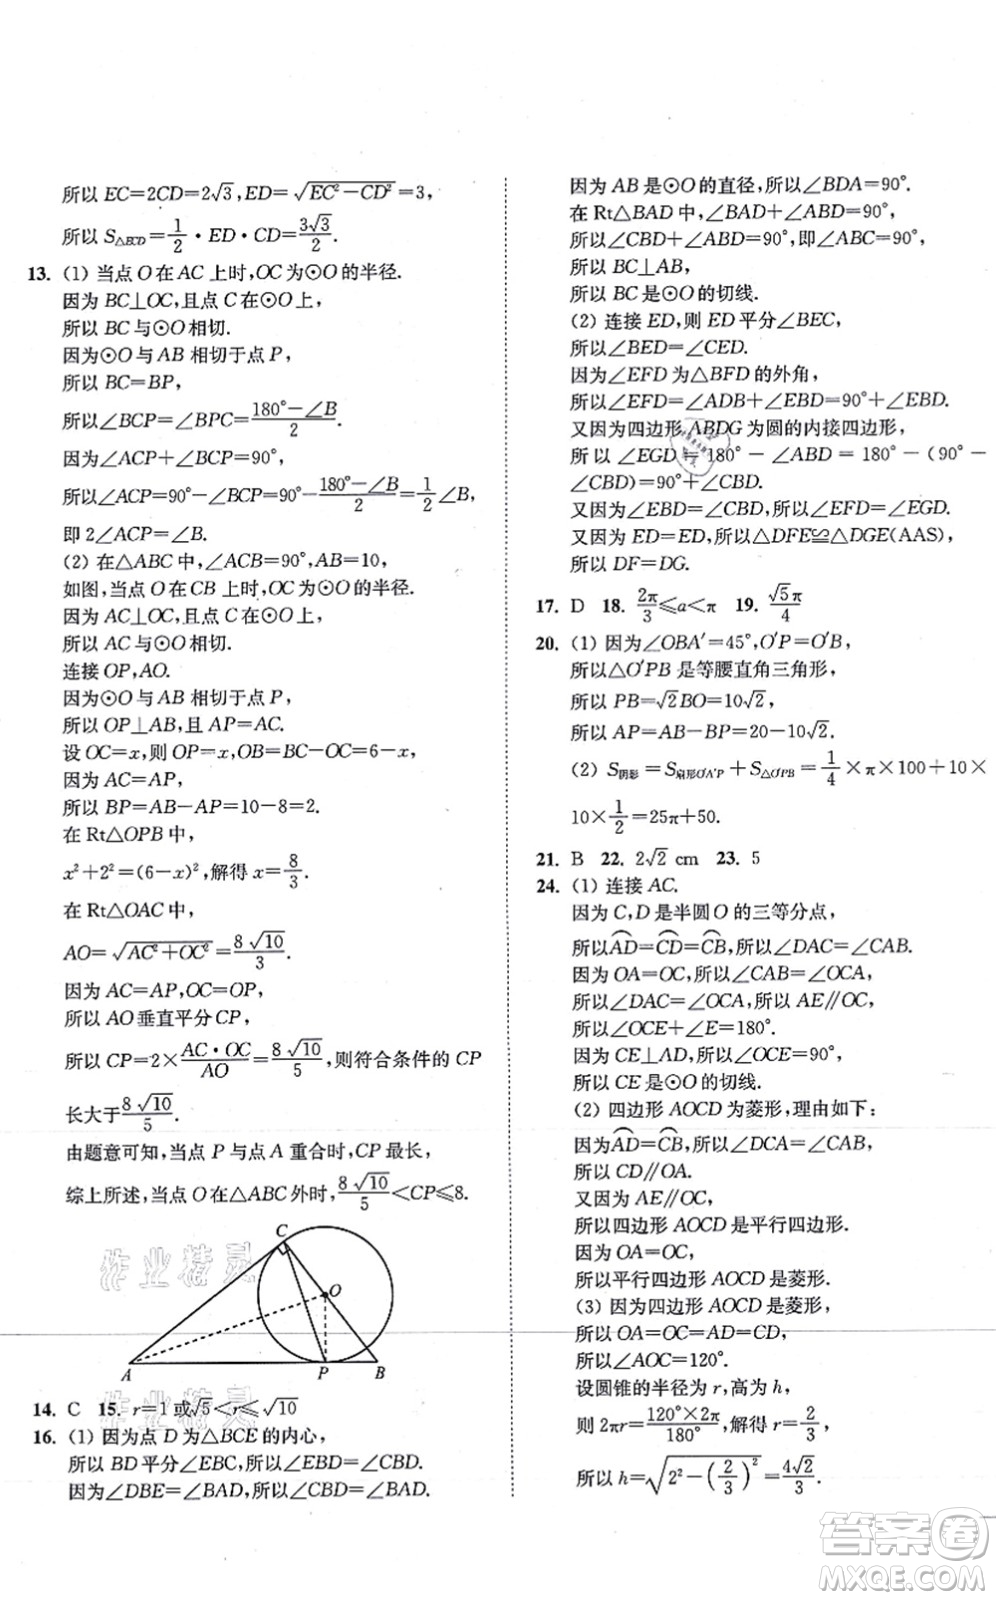 所以 EC=2CD=2√3,ED=√(EC²-CD²)=3,
所以 S△ECD=1/2·ED·CD=3√3/2.
13. (1) 当点 O 在 AC 上时,OC 为⊙O 的半径.
因为 BC⊥OC,且点 C 在⊙O 上,
所以 BC 与⊙O 相切.
因为⊙O 与 AB 相切于点 P,
所以 BC=BP,
所以∠BCP=∠BPC=(180°-∠B)/2.
因为∠ACP+∠BCP=90°,
所以∠ACP=90°-∠BCP=90°-(180°-∠B)/2=1/2∠B,
即 2∠ACP=∠B.
(2) 在△ABC 中,∠ACB=90°,AB=10,
如图,当点 O 在 CB 上时,OC 为⊙O 的半径.
因为 AC⊥OC,且点 C 在⊙O 上,
所以 AC 与⊙O 相切.
连接 OP,AO.
因为⊙O 与 AB 相切于点 P,
所以 OP⊥AB,且 AP=AC.
设 OC=x,则 OP=x,OB=BC-OC=6-x,
因为 AC=AP,
所以 BP=AB-AP=10-8=2.
在 Rt△OPB 中,
x²+2²=(6-x)²,解得 x=8/3.
在 Rt△OAC 中,
AO=√(AC²+OC²)=8√10/3.
因为 AC=AP,OC=OP,
所以 AO 垂直平分 CP,
所以 CP=2×(AC·OC)/AO=8√10/5,则符合条件的 CP
长大于8√10/5.
由题意可知,当点 P 与点 A 重合时,CP 最长,
综上所述,当点 O 在△ABC 外时,8√10/5<CP≤8.
C
O
A
P
B
作业精灵
作业精灵
14. C 15. r=1 或√5<r≤√10
16. (1) 因为点 D 为△BCE 的内心,
所以 BD 平分∠EBC,所以∠EBD=∠CBD.
因为∠DBE=∠BAD,所以∠CBD=∠BAD.
因为 AB 是⊙O 的直径,所以∠BDA=90°.
在 Rt△BAD 中,∠BAD+∠ABD=90°,
所以∠CBD+∠ABD=90°,即∠ABC=90°,
所以 BC⊥AB,
所以 BC 是⊙O 的切线.
(2) 连接 ED,则 ED 平分∠BEC,
所以∠BED=∠CED.
因为∠EFD 为△BFD 的外角,
所以∠EFD=∠ADB+∠EBD=90°+∠EBD.
又因为四边形 ABDG 为圆的内接四边形,
所以 ∠EGD = 180° - ∠ABD = 180° - (90° -
∠CBD)=90°+∠CBD.
又因为∠EBD=∠CBD,所以∠EFD=∠EGD.
又因为 ED=ED,所以△DFE≌△DGE(AAS),
所以 DF=DG.
17. D 18. 2π/3≤a<π 19. √5π/4
20. (1) 因为∠OBA′=45°,O′P=O′B,
所以△O′PB 是等腰直角三角形,
所以 PB=√2BO=10√2,
所以 AP=AB-BP=20-10√2.
(2) S阴影=S扇形O′A′P+S△O′PB=1/4×π×100+10×
10×1/2=25π+50.
21. B 22. 2√2 cm 23. 5
24. (1) 连接 AC.
因为 C,D 是半圆 O 的三等分点,
所以⌒AD=⌒CD=⌒CB,所以∠DAC=∠CAB.
因为 OA=OC,所以∠CAB=∠OCA,
所以∠DAC=∠OCA,所以 AE∥OC,
所以∠OCE+∠E=180°.
因为 CE⊥AD,所以∠OCE=90°,
所以 CE 是⊙O 的切线.
(2) 四边形 AOCD 为菱形,理由如下:
因为⌒AD=⌒CB,所以∠DCA=∠CAB,
所以 CD∥OA.
又因为 AE∥OC,
所以四边形 AOCD 是平行四边形.
因为 OA=OC,
所以平行四边形 AOCD 是菱形.
(3) 因为四边形 AOCD 是菱形,
所以 OA=OC=AD=CD,
所以∠AOC=120°.
设圆锥的半径为 r,高为 h,
则 2πr=(120°×2π)/180°,解得 r=2/3,
所以 h=√(2²-(2/3)²)=4√2/3.
答案卷
MXQE.COM